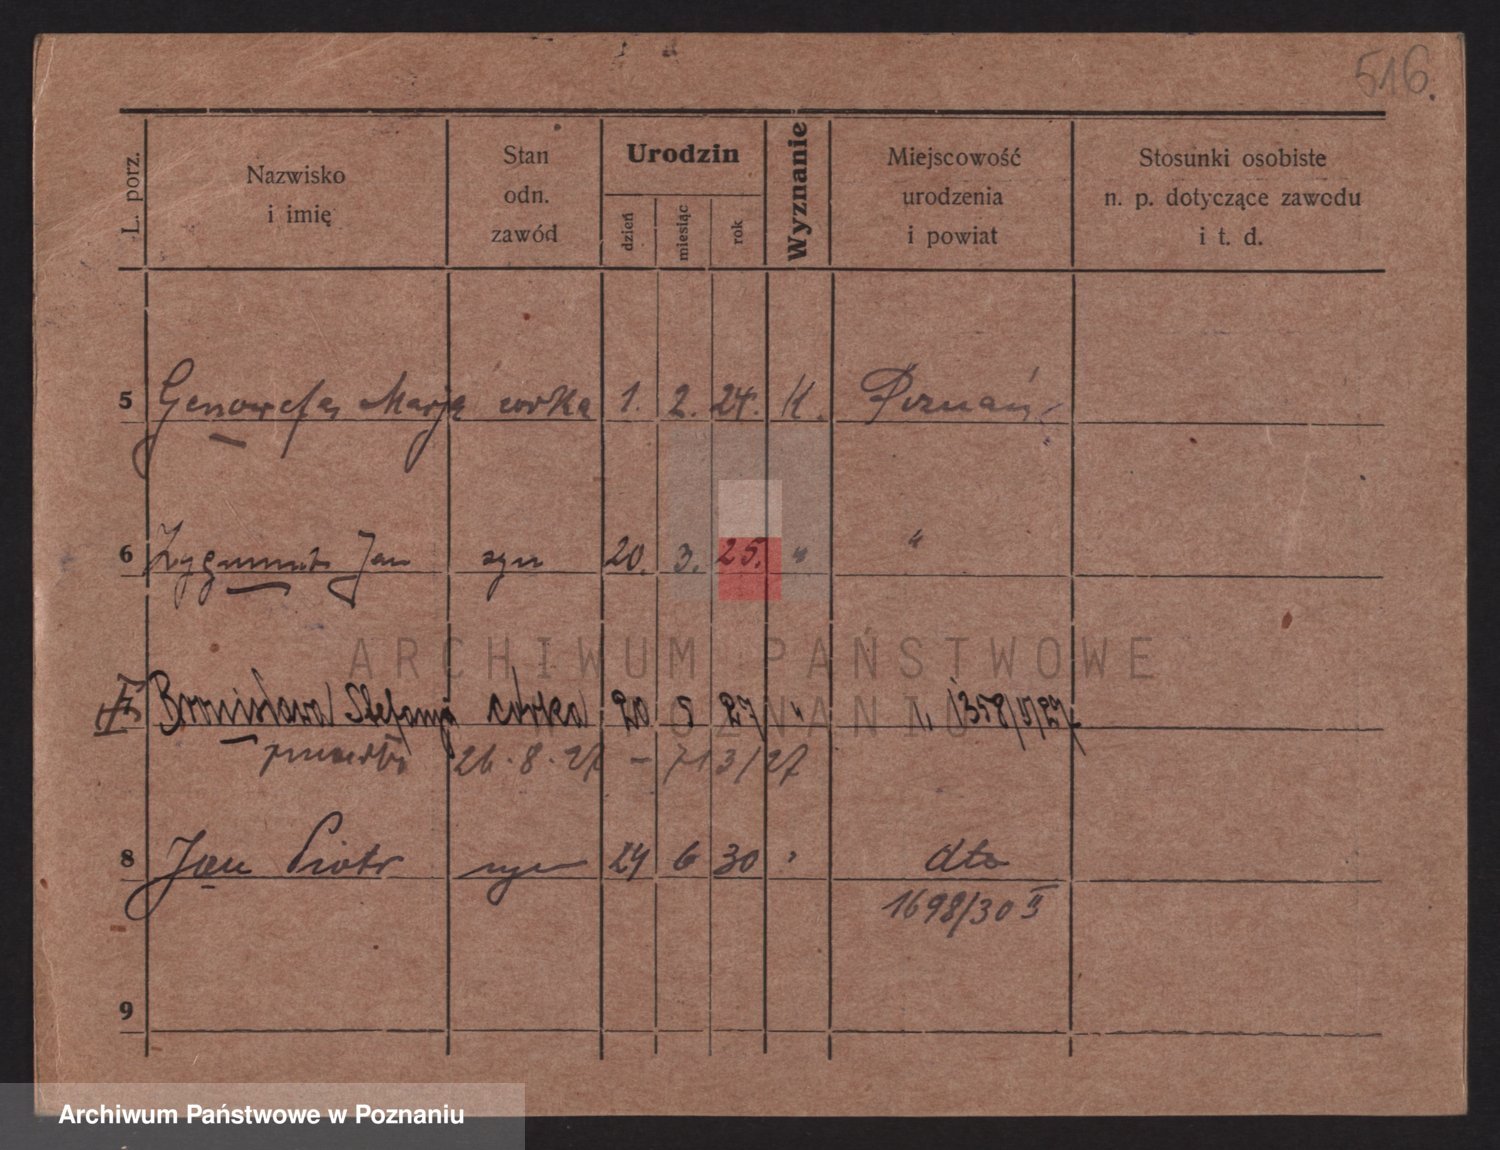 516.
L. porz.
Nazwisko
i imię
Stan
odn.
zawód
Urodzin
dzień
miesiąc
rok
Wyznanie
Miejscowość
urodzenia
i powiat
Stosunki osobiste
n. p. dotyczące zawodu
i t. d.
5 Genowefa Marja corka 1. 2. 24. K. Poznań
6 Zygmunt Jan syn 20. 3. 25. " "
ARCHIWUM PAŃSTWOWE
W POZNANIU
7 Bronisława Stefanja córka 20 5 27 " " 1358/V/27
26.8.27 - 713/27
8 Jan Piotr syn 24 6 30 " dto
1698/30 II
9
Archiwum Państwowe w Poznaniu